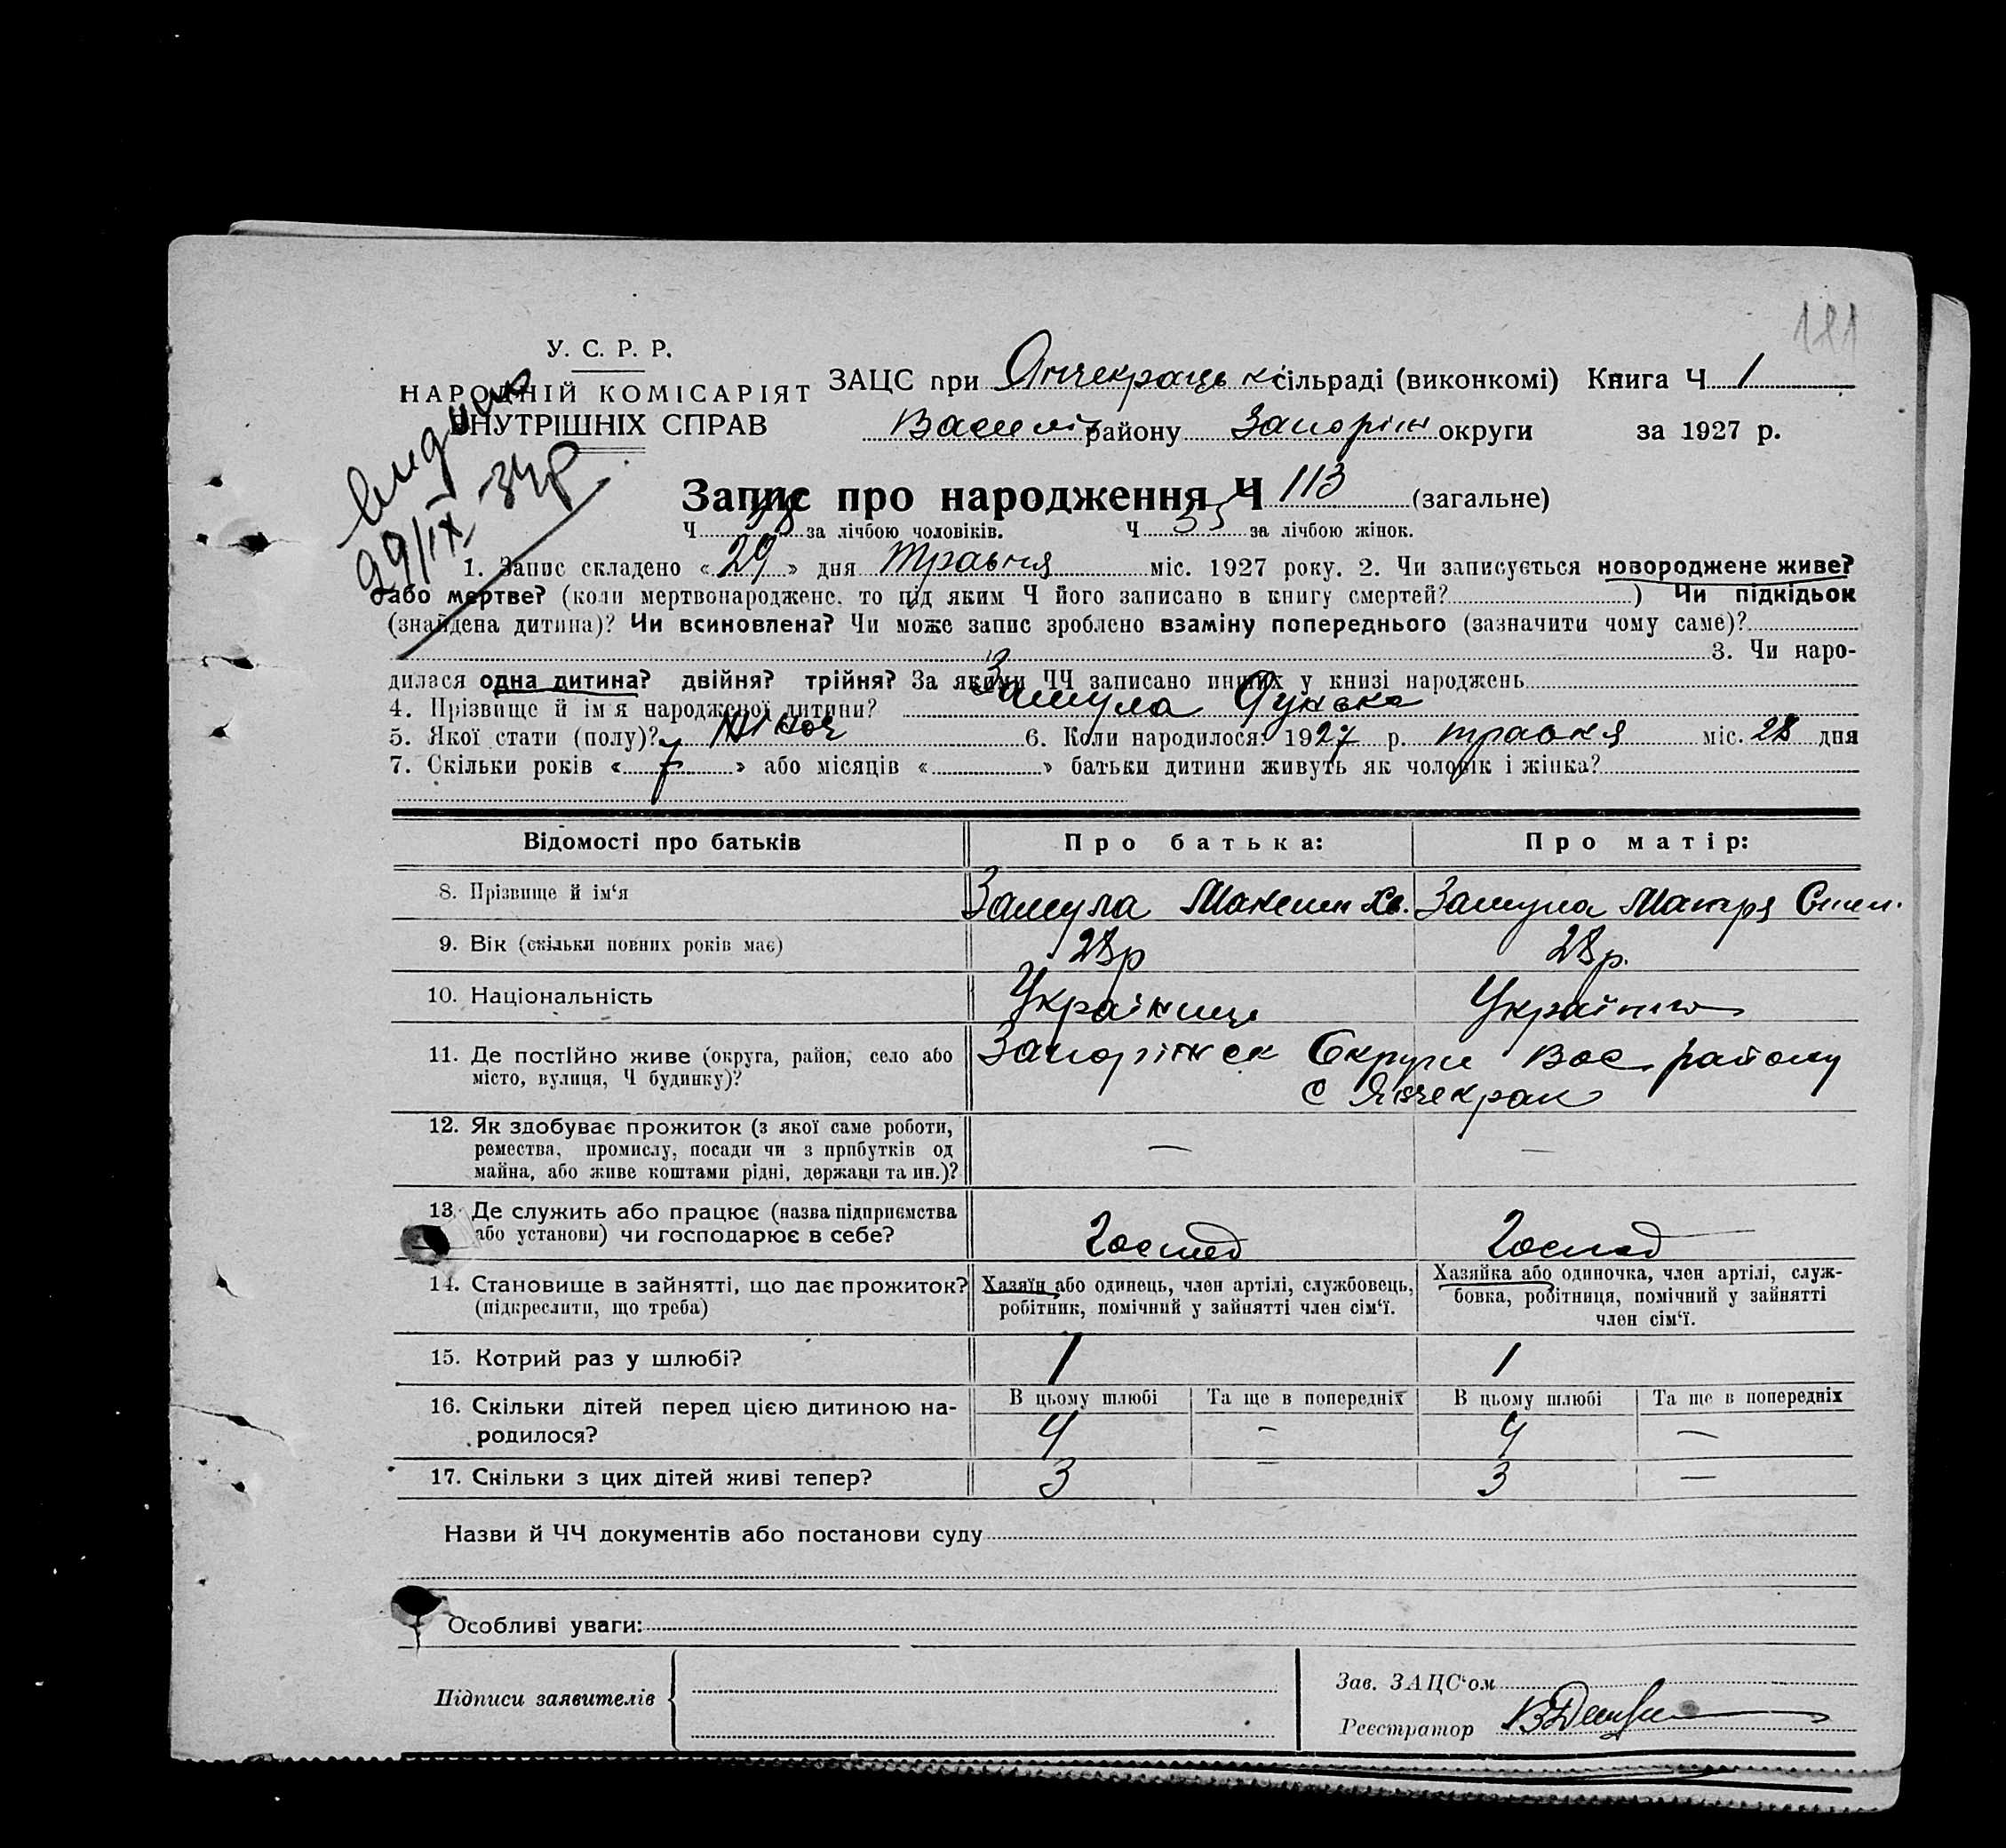 181
У. С. Р. Р.
НАРОДНІЙ КОМІСАРІЯТ
ВНУТРІШНІХ СПРАВ
ЗАЦС при Янчекраць к сільраді (виконкомі) Книга Ч 1
Василів району Запоріж округи за 1927 р.
29/IX 34р
Запис про народження Ч 113 (загальне)
Ч 58 за лічбою чоловіків. Ч 55 за лічбою жінок.
1. Запис складено « 29 » дня травня міс. 1927 року. 2. Чи записується новороджене живе?
або мертве? (коли мертвонароджене, то під яким Ч його записано в книгу смертей? ) Чи підкідьок
(знайдена дитина)? Чи всиновлена? Чи може запис зроблено взаміну попереднього (зазначити чому саме)?
3. Чи наро-
дилася одна дитина? двійня? трійня? За якими ЧЧ записано инших у книзі народжень
4. Прізвище й ім'я народженої дитини? Замула
5. Якої стати (полу)? Жіноч 6. Коли народилося? 1927 р. травня міс. 28 дня
7. Скільки років « 7 » або місяців « » батьки дитини живуть як чоловік і жінка?
Відомості про батьків Про батька: Про матір:
8. Прізвище й ім'я Замула Максим Хв. Замула Мотря
9. Вік (скільки повних років має) 28р 28р.
10. Національність Українець Українка
11. Де постійно живе (округа, район, село або
місто, вулиця, Ч будинку)?
Запоріжск Округи Вас району
с Янчекрак
12. Як здобуває прожиток (з якої саме роботи,
ремества, промислу, посади чи з прибутків од
майна, або живе коштами рідні, держави та ин.)?
— —
13. Де служить або працює (назва підприємства
або установи) чи господарює в себе?
Господ Господ
14. Становище в зайнятті, що дає прожиток?
(підкреслити, що треба)
Хазяїн або одинець, член артілі, службовець,
робітник, помічний у зайнятті член сім'ї.
Хазяйка або одиночка, член артілі, служ-
бовка, робітниця, помічний у зайнятті
член сім'ї.
15. Котрий раз у шлюбі? 1 1
16. Скільки дітей перед цією дитиною на-
родилося?
В цьому шлюбі Та ще в попередніх В цьому шлюбі Та ще в попередніх
4 – 4 —
17. Скільки з цих дітей живі тепер? 3 — 3 —
Назви й ЧЧ документів або постанови суду
Особливі уваги:
Підписи заявителів
Зав. ЗАЦС'ом
Реєстратор